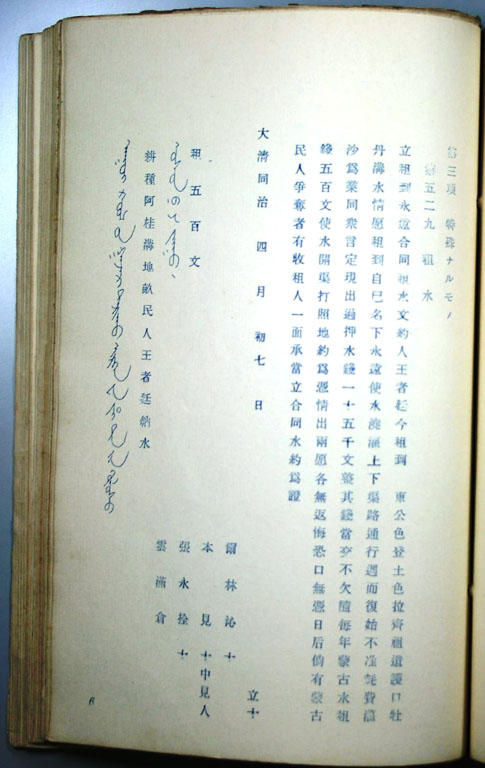 第三項 特殊ナルモノ
第五二九 租水
立租到永遠合同租水文約人王者廷今租到 東公色登土色拉齊祖遺護口牡
丹溝水情愿租到自己名下永遠使水澆灌上下渠路通行週而復始不准耗費灑
沙爲業同衆言定現出過押水錢一十五千文整其錢當交不欠隨每年蒙古水租
錢五百文使水開渠打照地約爲憑情出兩愿各無返悔恐口無憑日后倘有蒙古
民人爭奪者有收租人一面承當立合同水約爲證
大清同治 四月 初七日
租五百文
耕種阿桂溝地畝民人王者廷納水
立十
爾林沁 十
本見 十中見人
張永拴 十
雲滿倉